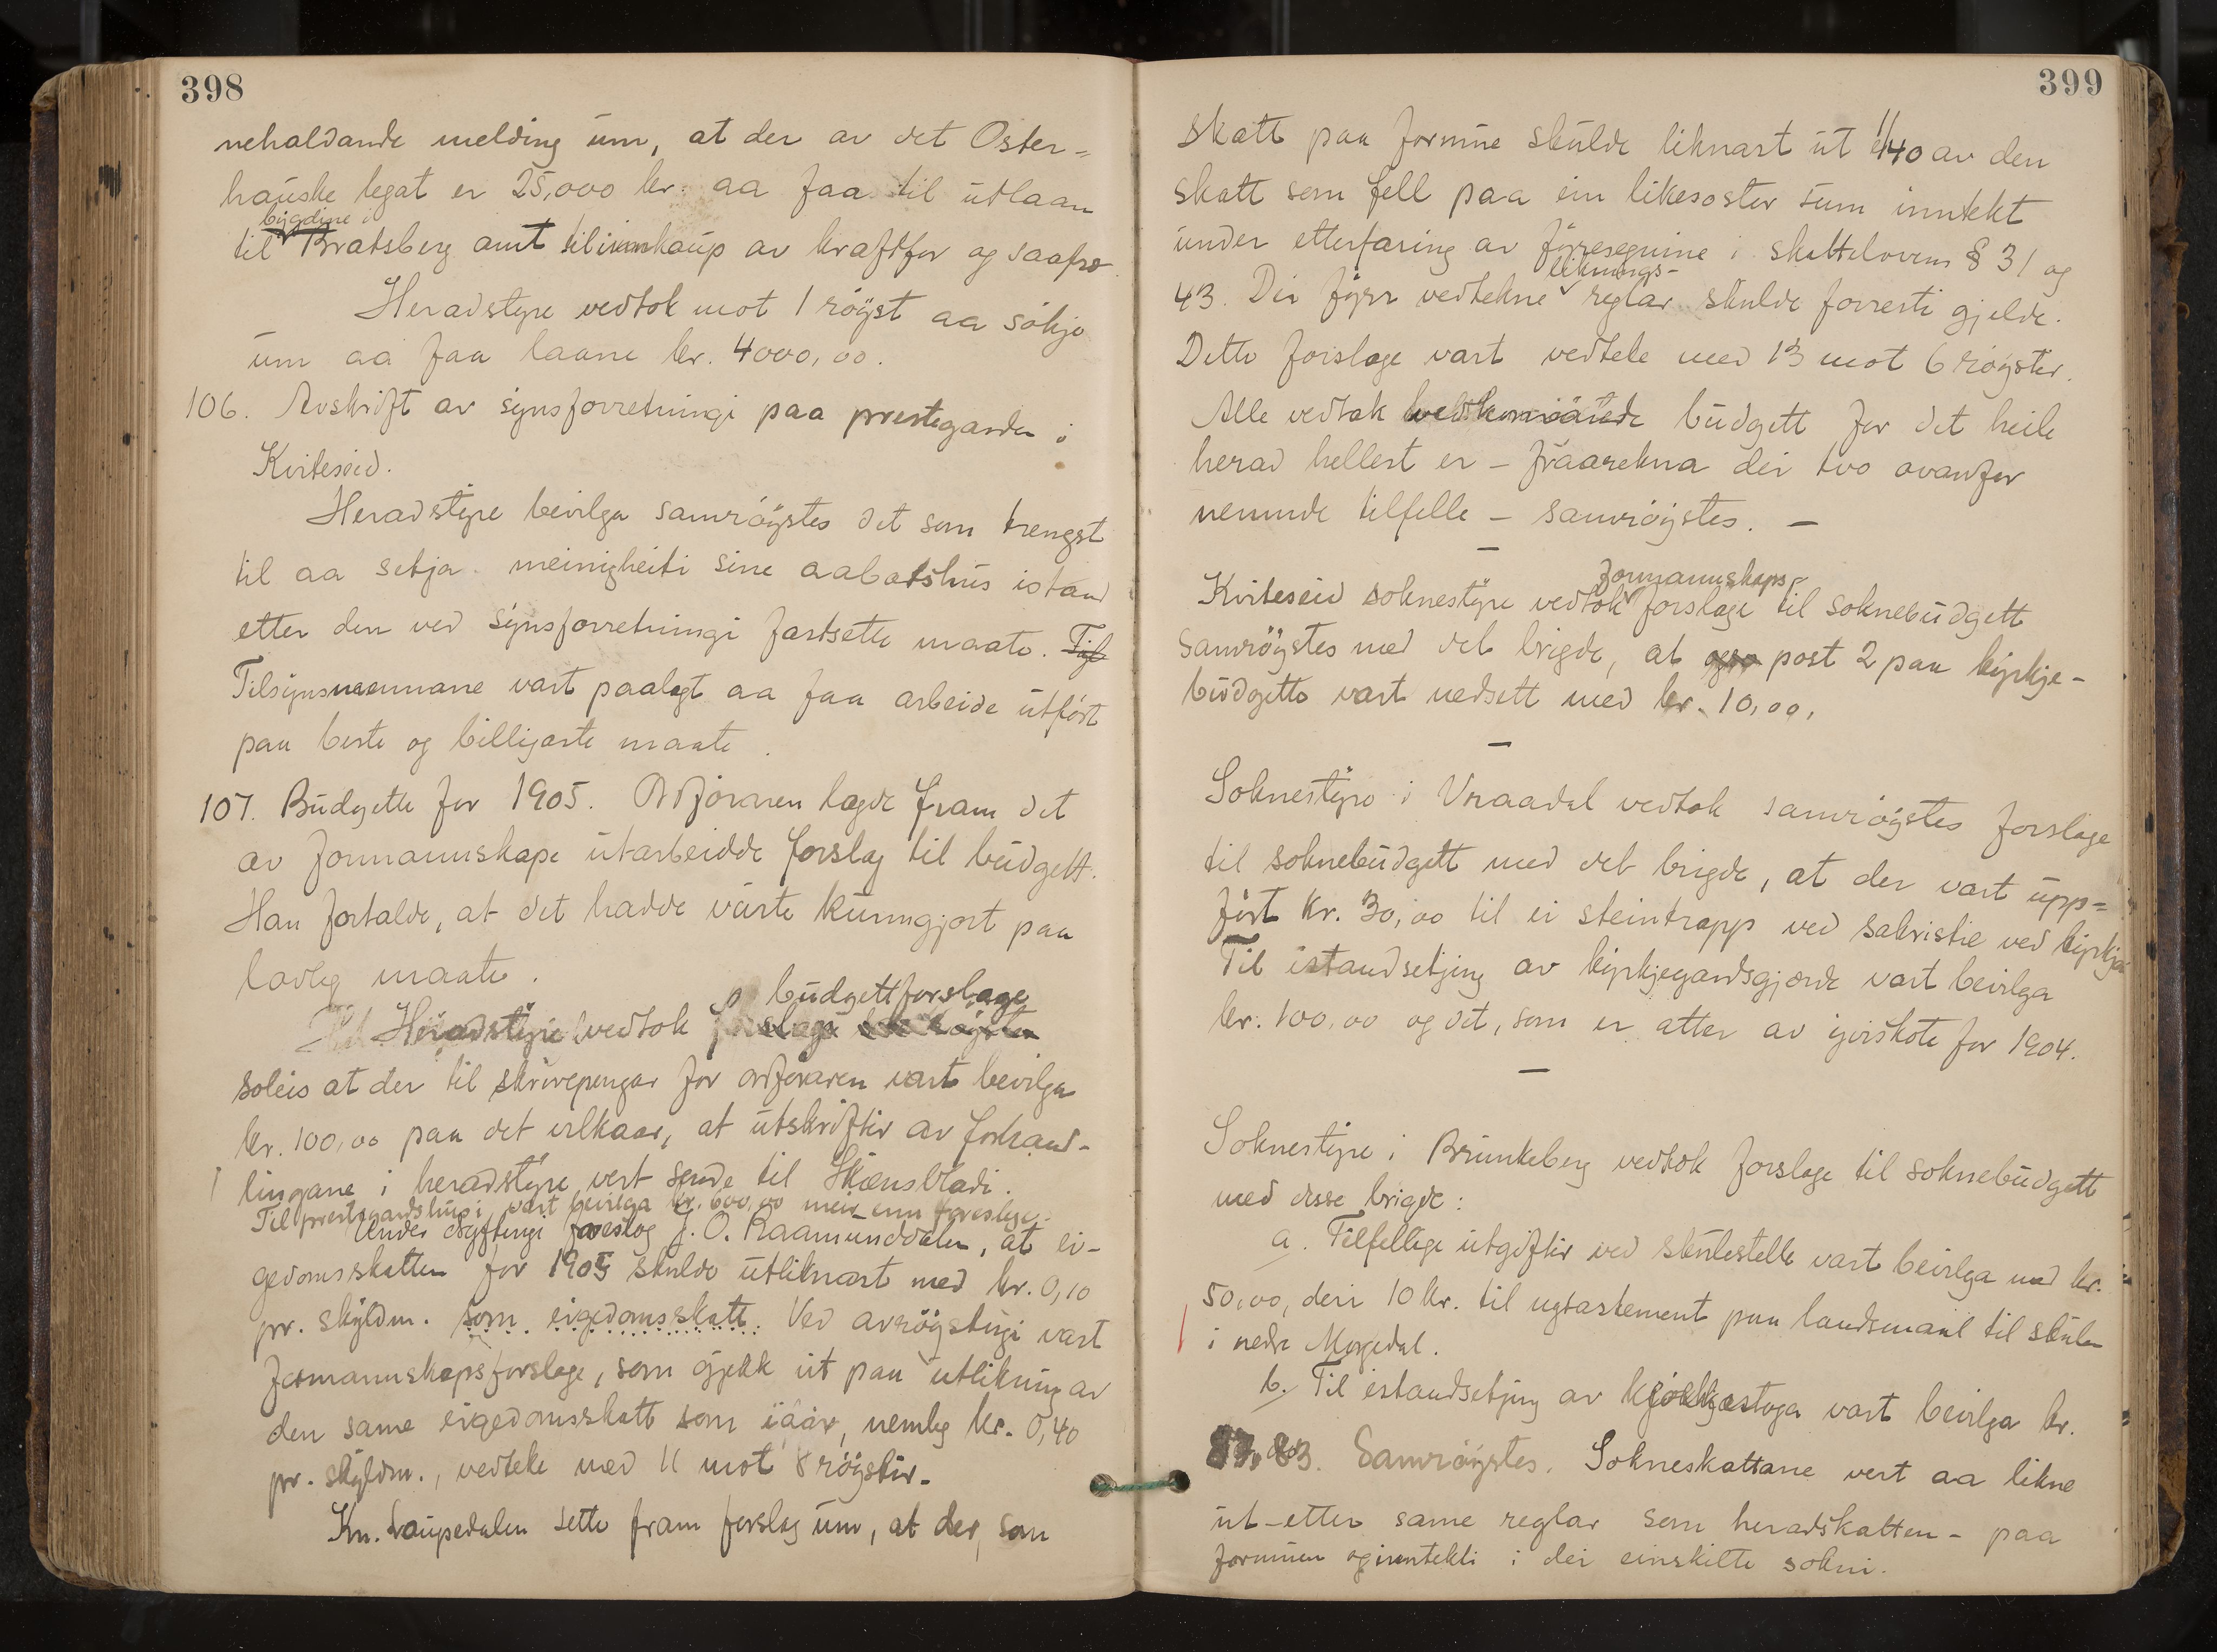 398
nehaldande melding um, at der av det Oster-
hauske legat er 25,000 kr. aa faa til utlaan
bygdine i
til Bratsberg amt til innkaup av kraftfor og saafrø.
Heradstyre vedtok mot 1 røyst aa søkje
um aa faa laane kr. 4000,00.
106. Avskrift av synsforretningi paa prestegarden i
Kviteseid.
Heradstyre bevilga samrøystes det som trengst
til aa setja meinigheiti sine aabotshus istand
etter den ved synsforretningi fastsette maate. Til
Tilsynsmennane vart paalagt aa faa arbeide utført
paa beste og billigaste maate.
107. Budgette for 1905. Ordføraren lagde fram det
av formannskape utarbeidde forslag til budgett.
Han fortalde, at det hadde vorte kunngjort paa
lovleg maate.
budgettforslage
Heradstyre vedtok forslage
soleis at der til skrivepengar for ordføraren vart bevilga
kr. 100,00 paa det vilkaar, at utskriftir av forhand-
lingane i heradstyre vert sende til Skiensbladi.
Til prestegardshusi vart bevilga kr. 600,00 meir enn foreslege.
Under drøftingi foreslog J. O. Raamunddalen, at ei-
gedomsskatten for 1905 skulde utliknast med kr. 0,10
pr. skyldm. som eigedomsskatt. Ved avrøystingi vart
formannskapsforslage, som gjekk ut paa utlikning av
den same eigedomsskatt som iaar, nemleg kr. 0,40
pr. skyldm., vedteke med 11 mot 8 røystir.
Kn. Laupedalen sette fram forslag um, at der, som
399
skatt paa formue skulde liknast ut 1/40 av den
skatt som fell paa ein likesostor sum inntekt
under etterfaring av fyresegnine i skattelovens § 31 og
liknings-
43. Dei fyrr vedtekne reglar skulde forresti gjelde.
Dette forslage vart vedteke med 13 mot 6 røyster.
Alle vedtak vedkomande budgett for det heile
herad hellest er - fraarekna dei tvo ovanfor
nemnde tilfelle - samrøystes. -
formannskaps-
Kviteseid soknestyre vedtok forslage til soknebudgett
samrøystes med det brigde, at post 2 paa kyrkje-
budgette vart nedsett med kr. 10,00.
Soknestyre i Vraadal vedtok samrøystes forslage
til soknebudgett med det brigde, at der vart upp-
ført kr. 30,00 til ei steintrapp ved sakristie ved kyrkja.
Til istandsetjing av kyrkjegardsgjerde vart bevilga
kr. 100,00 og det, som er atter av yvirskote for 1904.
Soknestyre i Brunkeberg vedtok forslage til soknebudgett
med desse brigde:
a. Tilfellige utgiftir ved skulestelle vart bevilga med kr.
50,00, deri 10 kr. til nytestament paa landsmaal til skulen
i nedre Morgedal.
b. Til istandsetjing av kyrkjestoga vart bevilga kr.
83. Samrøystes. Sokneskattane vert aa likne
ut etter same reglar som heradskatten - paa
formuen og inntekti i dei einskilte sokni.